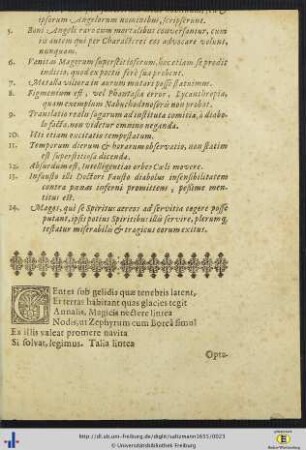 ipsorum Angelorum nominibus, scripserunt.
5. Boni Angeli raro cum mortalibus conversantur, cum
iis autem qui per Characteres eos advocare volunt,
nunquam.
6. Vanitas Magorum superstitiosorum, hoc etiam se prodit
indicio, quod ex pacti ferè sua probent.
7. Metalla viliora in aurum mutari posse statuimus.
8. Figmentum est, vel Phantasiæ error, Lycanthropia,
quam exemplum Nabuchodnosoris non probat.
9. Translatio realis sagarum ad instituta comitia, à diabo-
lo facta, non videtur omnino neganda.
10. Uti etiam excitatio tempestatum.
11. Temporum dierum & horarum observatio, non statim
est superstitiosa dicenda.
12. Absurdum est, Intelligentias orbes Cœli movere.
13. Infausto illi Doctori Fausto diabolus insensibilitatem
contra pœnas inferni promittens, pessime men-
titus est.
14. Magos, qui se Spiritus aereos ad servitia cogere posse
putant, ipsi potius Spiritibus illis servire, plerumq;
testatur miserabilis & tragicus eorum exitus.
GEntes sub gelidis quæ tenebris latent,
Et terras habitant quas glacies tegit
Annalis, Magicis nectere lintea
Nodis, ut Zephyrum cum Boreâ simul
Ex illis valeat promere navita
Si solvat, legimus. Talia lintea
Opta-
http://dl.ub.uni-freiburg.de/diglit/saltzmann1655/0023
© Universitätsbibliothek Freiburg